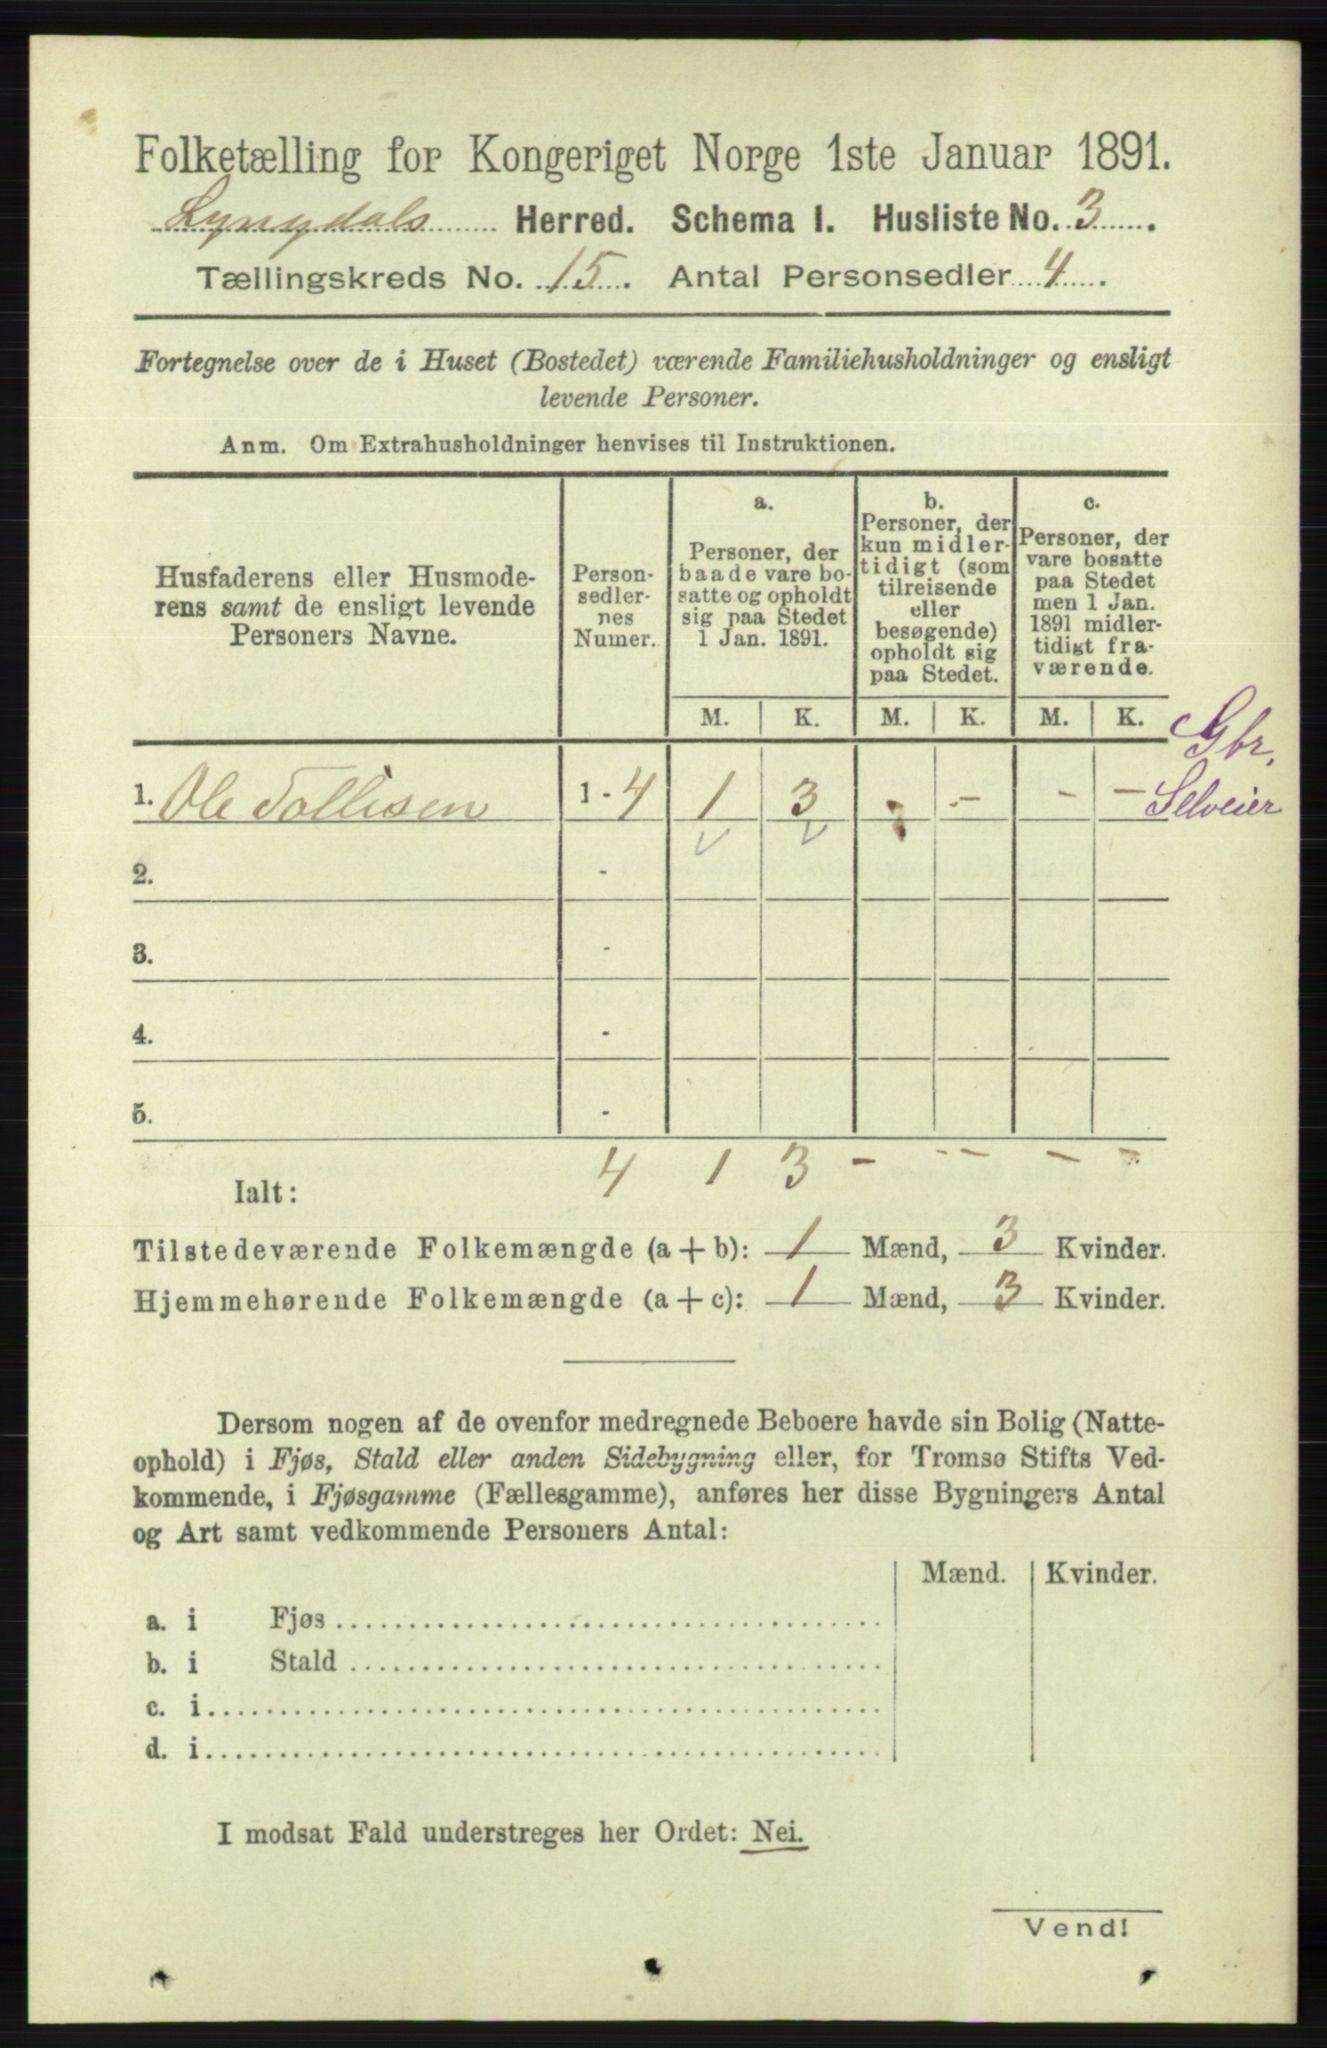 Folketælling for Kongeriget Norge 1ste Januar 1891.
Lyngdals Herred. Schema I. Husliste No. 3.
Tællingskreds No. 15. Antal Personsedler 4.
Fortegnelse over de i Huset (Bostedet) værende Familiehusholdninger og ensligt
levende Personer.
Anm. Om Extrahusholdninger henvises til Instruktionen.
Husfaderens eller Husmode-
rens samt de ensligt levende
Personers Navne.
Person-
sedler-
nes
Numer.
a.
Personer, der
baade vare bo-
satte og opholdt
sig paa Stedet
1 Jan. 1891.
b.
Personer, der
kun midler-
tidigt (som
tilreisende
eller
besøgende)
opholdt sig
paa Stedet.
c.
Personer, der
vare bosatte
paa Stedet
men 1 Jan.
1891 midler-
tidigt fra-
værende.
M. K. M. K. M. K.
Gbr,
Selveier
1. Ole Tollisen 1 - 4 1 3 - - - -
2. -
3. -
4. -
5. -
Ialt: 4 1 3 - - - -
Tilstedeværende Folkemængde (a + b): 1 Mænd, 3 Kvinder.
Hjemmehørende Folkemængde (a + c): 1 Mænd, 3 Kvinder.
Dersom nogen af de ovenfor medregnede Beboere havde sin Bolig (Natte-
ophold) i Fjøs, Stald eller anden Sidebygning eller, for Tromsø Stifts Ved-
kommende, i Fjøsgamme (Fællesgamme), anføres her disse Bygningers Antal
og Art samt vedkommende Personers Antal:
Mænd. Kvinder.
a. i Fjøs
b. i Stald
c. i
d. i
I modsat Fald understreges her Ordet: Nei.
Vend!